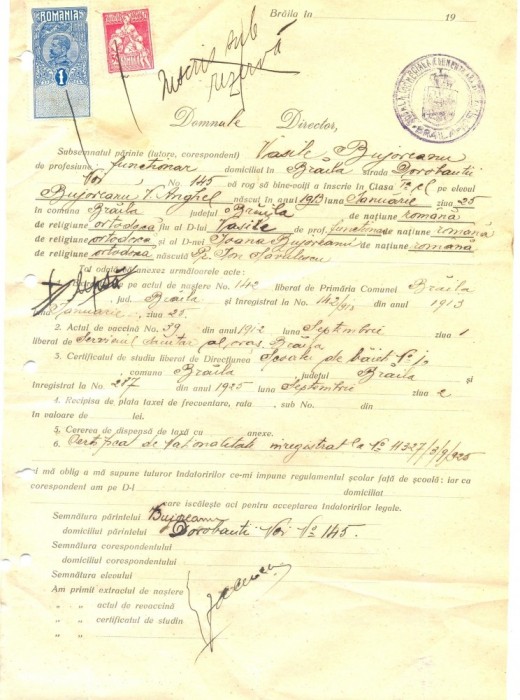 Brăila în 19
ROMANIA
1
Inscris sub
rezervă
BRĂILA
Domnule Director,
Subsemnatul părinte (tutore, corespondent) Vasile Bujoreanu
de profesiune funcționar domiciliat în Brăila strada Dorobanti
Noi No. 145 vă rog să bine-voiți a înscrie în Clasa pe elevul
Bujoreanu V. Anghel născut în anul 1913 luna Ianuarie ziua 25
în comuna Brăila județul Brăila de națiune română
de religiune ortodoxă fiu al D-lui Vasile de prof. de națiune română
de religiune ortodoxă și al D-nei Ioana Bujoreanu de națiune română
de religiune ortodoxă
Tot odată vă anexez următoarele acte:
de pe actul de naștere No. 142 liberat de Primăria Comunei Brăila
jud. Brăila și înregistrat la No. 142/913 din anul 1913
luna Ianuarie ziua
2. Actul de vaccină No. 39 din anul 1912 luna Septembrie ziua 1
liberat de Serviciul sanitar al oraș. Brăila
3. Certificatul de studii liberat de Direcțiunea Școalei de băieți No.
comuna Brăila județul Brăila și
înregistrat la No. din anul 1925 luna Septembrie ziua 2
4. Recipisa de plata taxei de frecuentare, rata sub No. din
în valoare de lei.
5. Cererea de dispensă de taxă cu anexe.
6. Certificat de naționalitate înregistrat la No 11327
și mă oblig a mă supune tuturor îndatoririlor ce-mi impune regulamentul școlar față de școală: iar ca
corespondent am pe D-l
domiciliat
care iscălește aci pentru acceptarea îndatoririlor legale.
Semnătura părintelui Bujoreanu
domiciliul părintelui Dorobanti Noi No 145.
Semnătura corespondentului
domiciliul corespondentului
Semnătura elevului
Am primit extractul de naștere
„ „ actul de revaccină
„ „ certificatul de studii
„ „